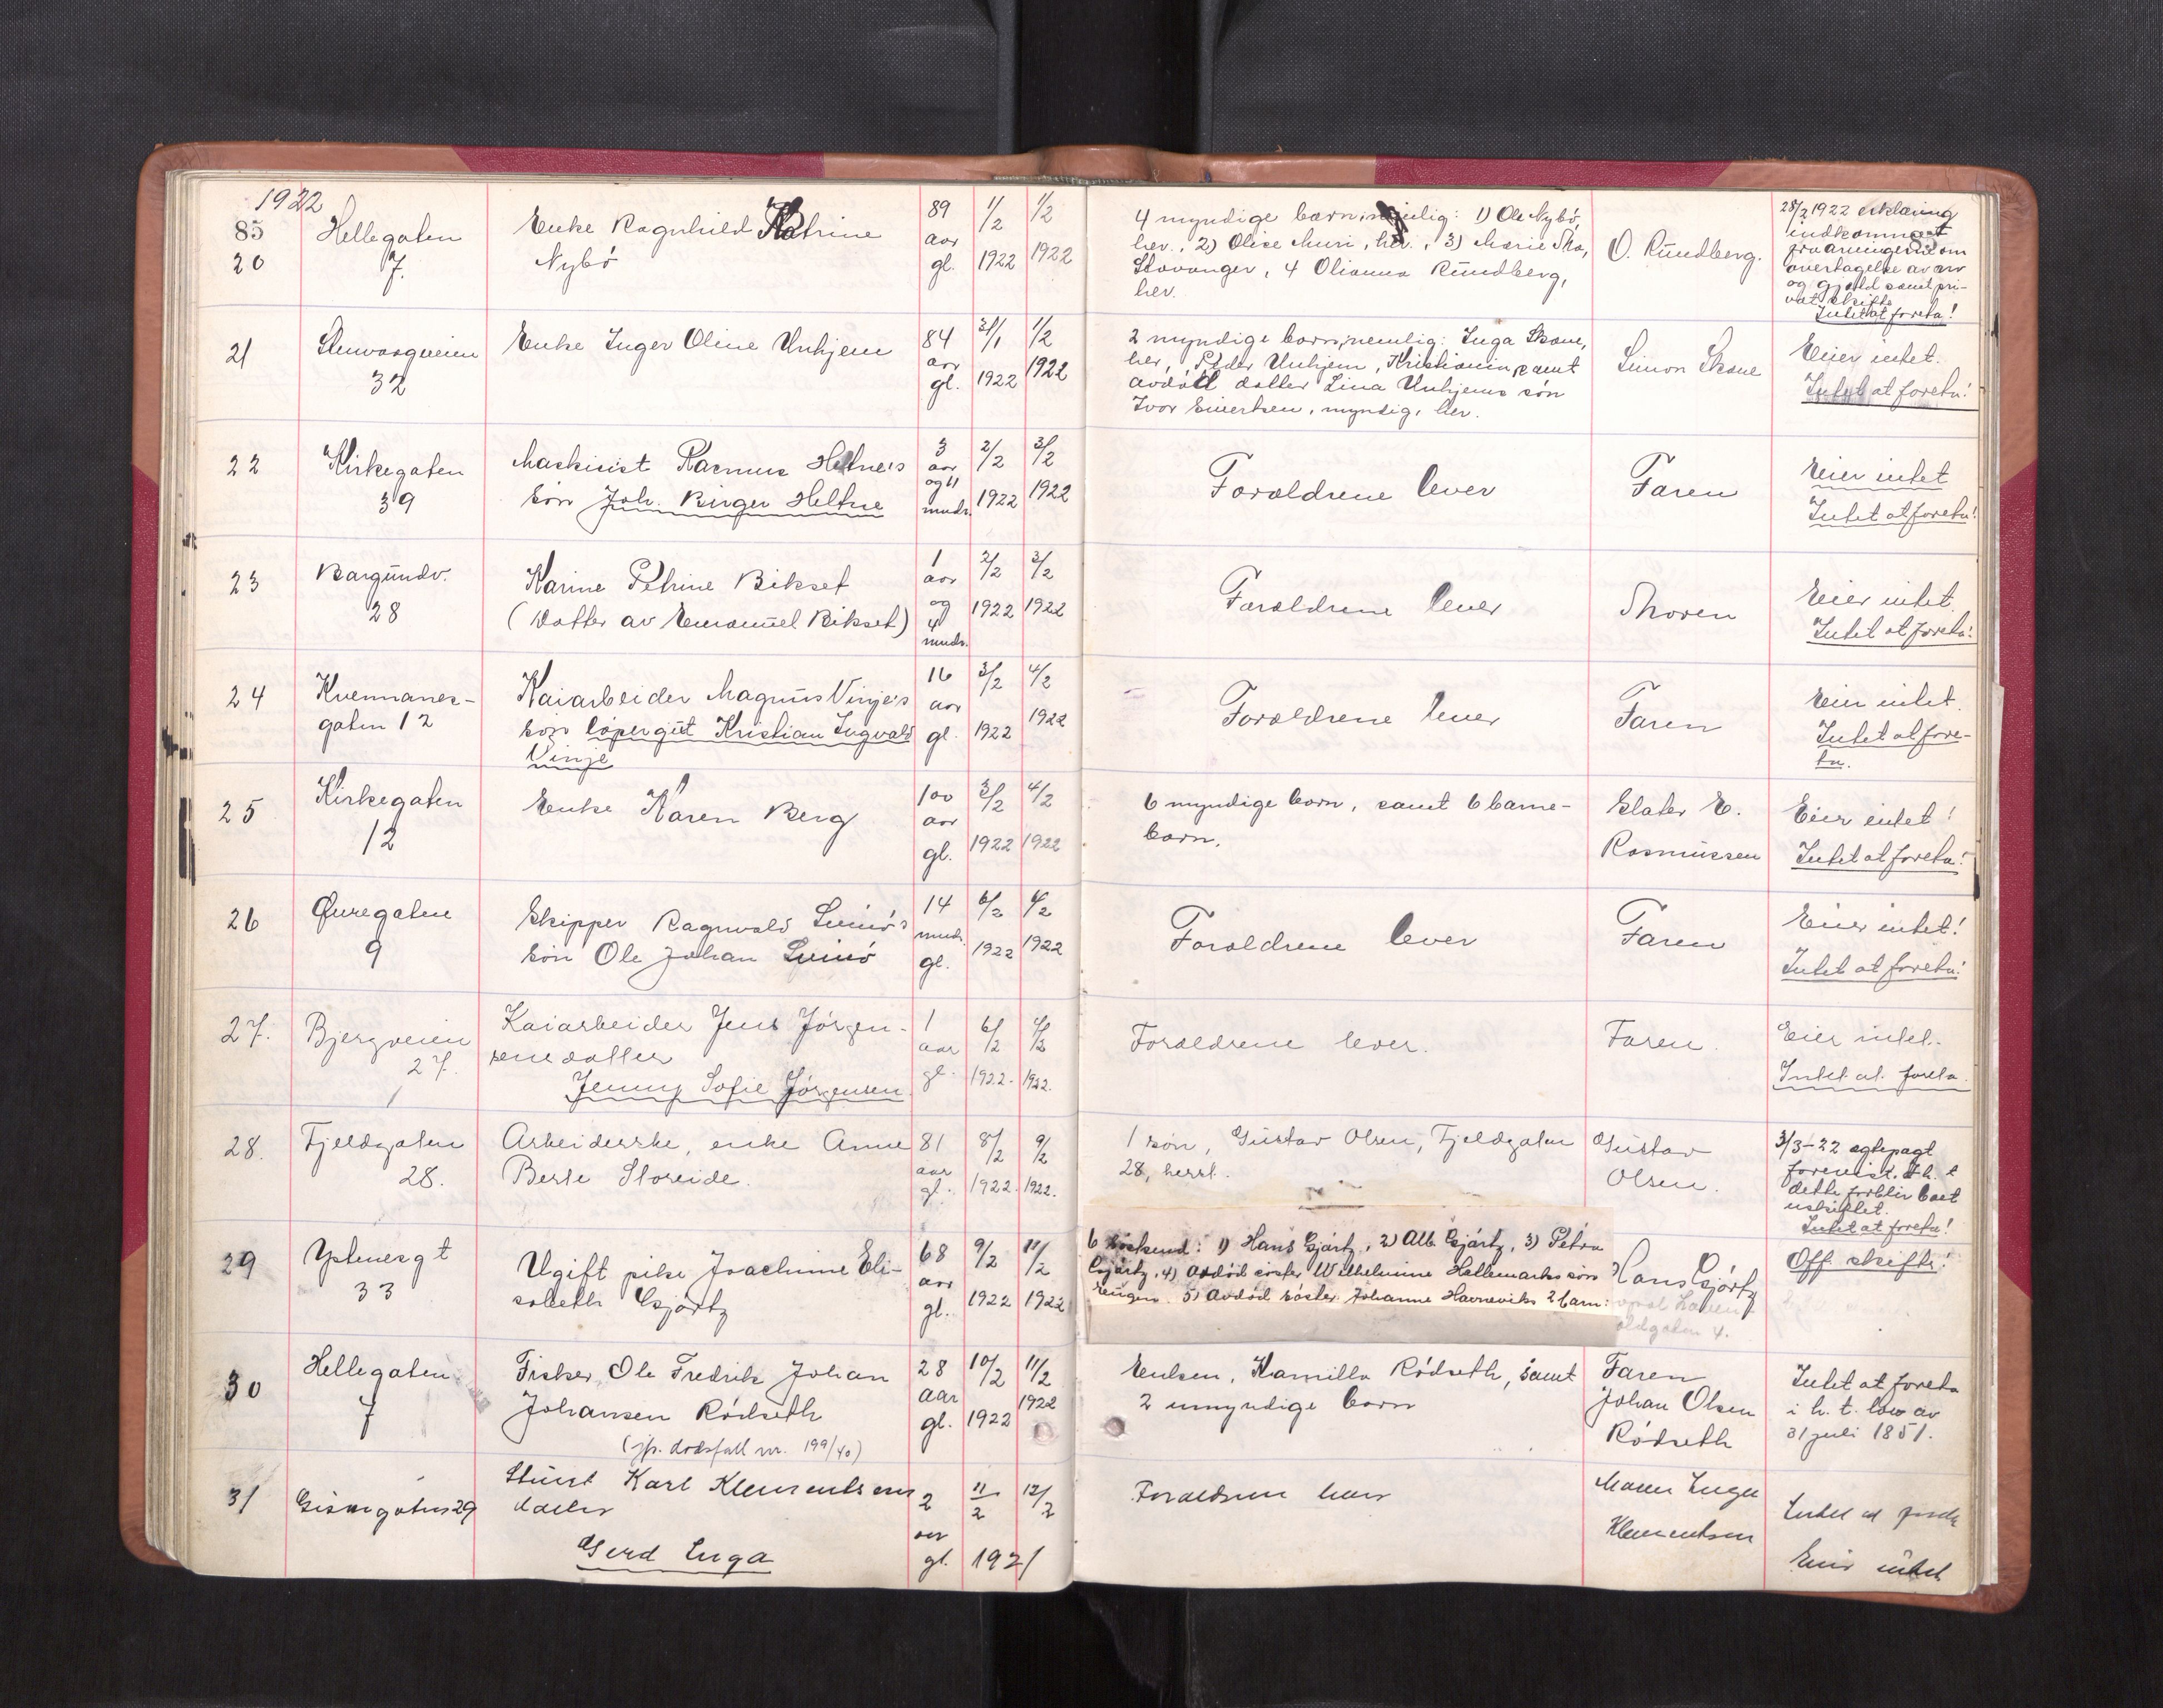 1922
85
20
Hellegaten
7.
Enke Ragnhild Katrine
Nybö
89
aar
gl.
1/2
1922
1/2
1922
4 myndige barn, nemlig: 1) Ole Nybö,
her., 2) Olise Muri, her., 3) Marie
Stavanger, 4 Olianna Rundberg,
her.
O. Rundberg.
28/2 1922 erklæring
indkommet
fra arvingerne om
overtagelse av arv
og gjæld samt pri-
vat skifte
Intet at foreta!
21
32
Enke Inger Oline Unhjem
84
aar
gl.
31/1
1922
1/2
1922
2 myndige barn, nemlig: Inga Skane,
her, Peder Unhjem, Kristiania, samt
avdöd datter Lina Unhjems sön
Ivar Eivertsen, myndig, her.
Simon Skane
Eier intet.
Intet at foreta!
22
Kirkegaten
39
Maskinist Rasmus Heltne's
sön Joh. Birger Heltne
3
aar
og 11
mndr.
2/2
1922
3/2
1922
Forældrene lever
Faren
Eier intet
Intet at foreta!
23
Borgundv.
28
Karine Petrine Bikset
(Datter av Emanuel Bikset)
1
aar
og
4
mndr.
2/2
1922
3/2
1922
Forældrene lever
Moren
Eier intet.
Intet at foreta!
24
Kvennanes-
gaten 12
Kaiarbeider Magnus Vinje's
sön löpergut Kristian Ingvald
Vinje
16
aar
gl.
3/2
1922
4/2
1922
Forældrene lever
Faren
Eier intet.
Intet at fore-
ta.
25
Kirkegaten
12
Enke Karen Berg
100
aar
gl.
3/2
1922
4/2
1922
6 myndige barn, samt 6 barne-
barn.
Slater E.
Rasmussen
Eier intet!
Intet at foreta!
26
Øuregaten
9
Skipper Ragnvald
sön Ole Johan
14
mndr.
gl.
6/2
1922
6/2
1922
Forældrene lever
Faren
Eier intet!
Intet at foreta!
27.
Bjergveien
27.
Kaiarbeider Jens Jörgen-
sens datter
Jenny Sofie Jörgensen
1
aar
gl.
6/2
1922.
1922.
Forældrene lever.
Faren.
Eier intet.
Intet at foreta.
28.
Fjeldgaten
28.
Arbeiderske, enke Anne
Berte Storeide.
81
aar
gl.
8/2
1922.
9/2
1922.
1 sön, Gustav Olsen, Fjeldgaten
28, herst.
Gustav
Olsen.
3/3-22 egtepagt
forevist. I h. t
dette forblir boet
uskiftet.
Intet at foreta!
29
Ystenesgt
33
Ugift pike Joachime Eli-
sabeth Gjörtz
68
aar
gl.
9/2
1922
10/2
1922
6 söskend: 1) Hans Gjörtz, 2) Alb. Gjörtz, 3) Petra
Gjörtz, 4) avdöd söster Wilhelmine Hellemarks sön
Eugen. 5) Avdöd söster Johanne Havneviks 2 barn:
Hans Gjörtz
gaten 4.
Off. skifte!
30
Hellegaten
7
Fisker, Ole Fredrik Johan
Johansen Rödseth
(jfr. dödsfall nr. 199/40)
28
aar
gl.
10/2
1922
11/2
1922
Enken, Kamilla Rödseth, samt
2 umyndige barn
Faren
Johan Olsen
Rödseth
Intet at foreta
i h. t. lov av
31 juli 1851.
31
29
Stuert Karl Klementsens
datter
Gerd Inga
2
aar
gl.
11/2
1921
12/2
Forældrene lever
Moren Inga
Klementsen
Intet at foreta
Eier intet